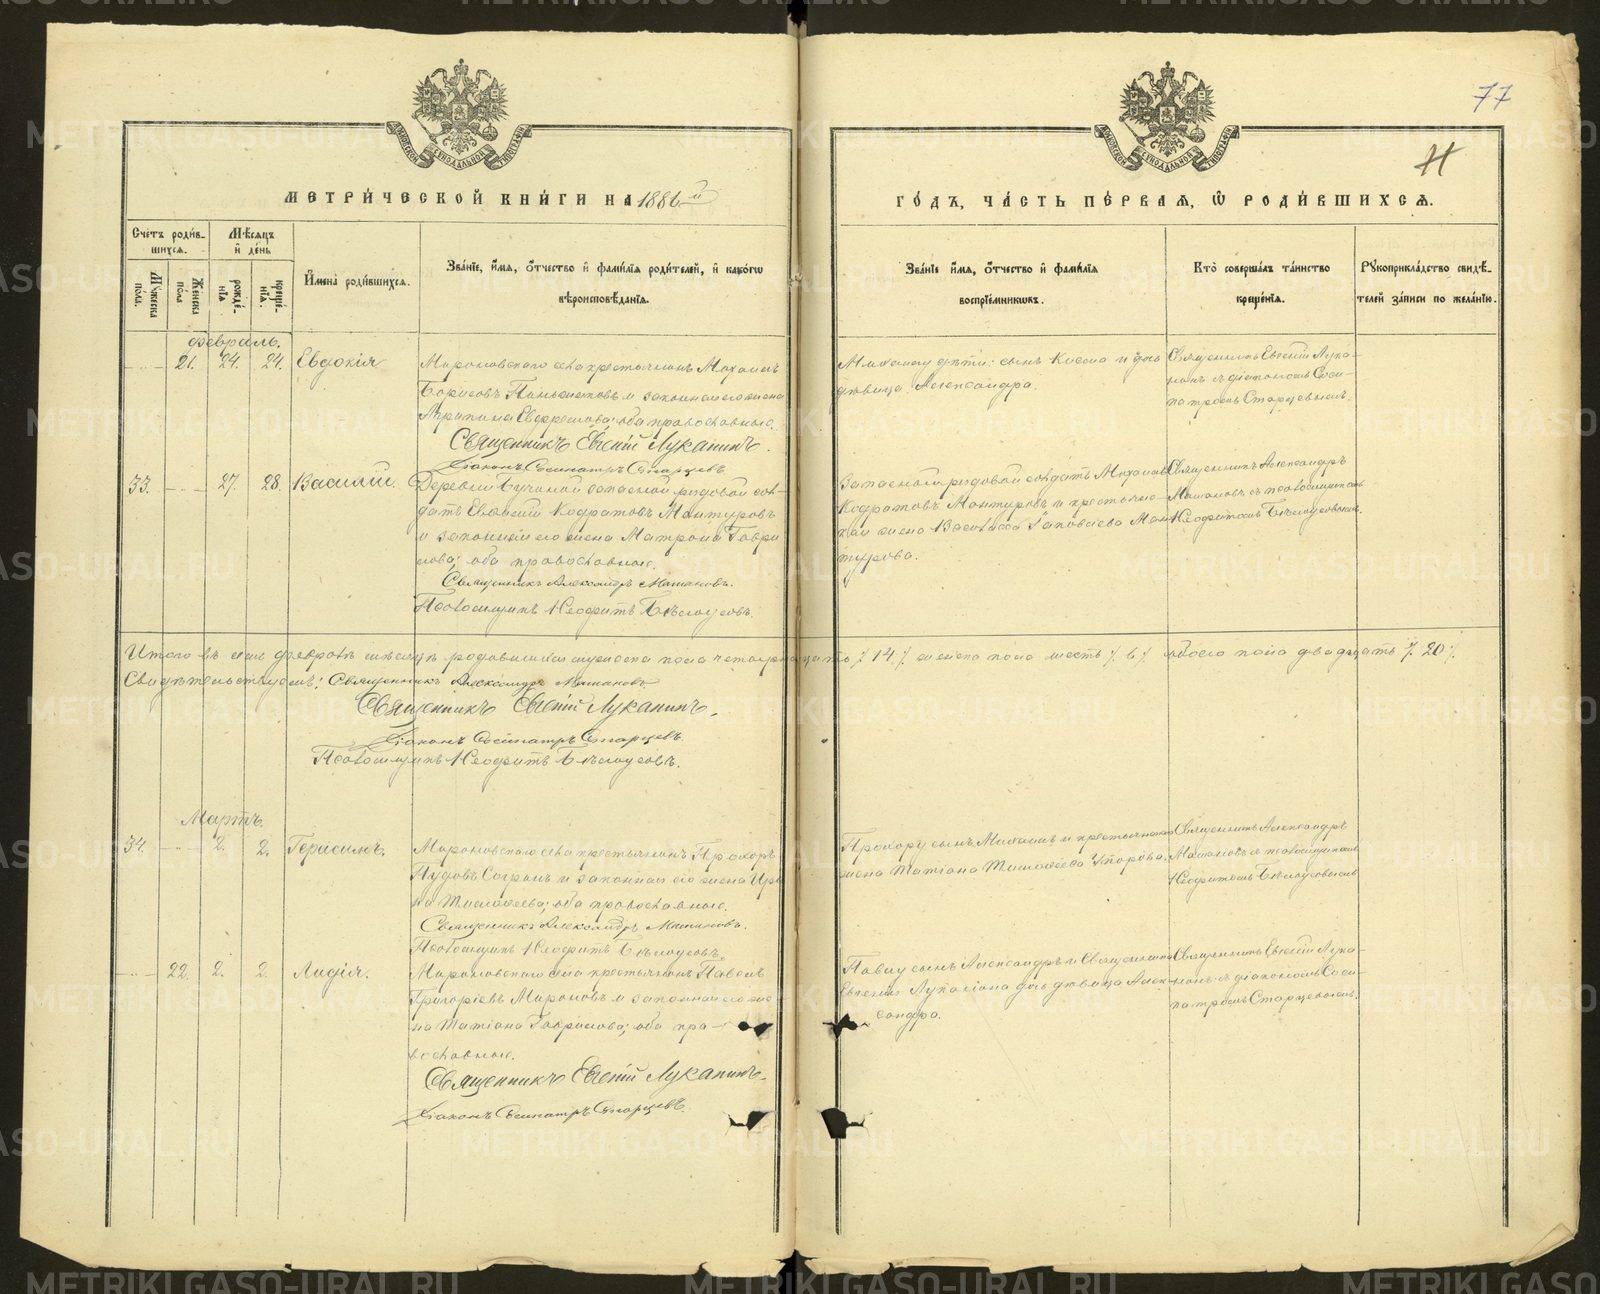 77
11
МЕТРИЧЕСКОЙ КНИГИ НА 1886й
ГОДЪ, ЧАСТЬ ПЕРВАЯ, Ѡ РОДИВШИХСЯ.
Счетъ родившихся.
Мѣсяцъ и день
Мужеска пола.
Женска пола
рожденія.
крещенія.
Имена родившихся.
Званіе, имя, отчество и фамилія родителей, и какогω
вѣроисповѣданія.
Званіе имя, отчество и фамилія
воспріемникωвъ.
Кто совершалъ таинство
крещенія.
Рукоприкладство свидѣтелей записи по желанію.
Февраль.
21. 24. 24. Евдокія
Мироновскаго села крестьянинъ
Борисовъ и законная его жена
оба православные.
Священникъ Евгеній Луканинъ.
Діаконъ Сосипатръ Старцевъ
сынъ Косма и дочь
дѣвица Александра.
Священникъ Евгеній Лука-
нинъ съ діакономъ Соси-
патромъ Старцевымъ.
33. 27. 28. Василій.
Деревни запасной рядовой сол-
датъ Евсевій Кодратовъ Мантуровъ
и законная его жена Матрона Гаври-
лова; оба православные.
Священникъ Александръ Мамановъ.
Псаломщикъ Неофитъ Бѣлоусовъ.
Запасный рядовой солдатъ
Кодратовъ Мантуровъ и крестьянс-
кая жена Ман-
турова.
Священникъ Александръ
Маманов съ псаломщикомъ
Неофитомъ Бѣлоусовымъ.
Итого въ февралѣ мѣсяцѣ родившихся мужеска пола четырнадцать /14/ женска пола шесть /6/ обоего пола двадцать /20/.
Свидѣтельствуемъ: Священникъ Александръ Мамановъ
Священникъ Евгеній Луканинъ.
Діаконъ Сосипатръ Старцевъ.
Псаломщикъ Неофитъ Бѣлоусовъ.
Мартъ.
34. 2. 2. Герасимъ.
Мироновскаго села крестьянинъ Прохоръ
и законная его жена Ири-
на Тимофеева; оба православные.
Священникъ Александръ Мамановъ.
Псаломщикъ Неофитъ Бѣлоусовъ.
Прохору сынъ и крестьянская
жена Татіана Тимофеева
Священникъ Александръ
Маманов съ псаломщикомъ
Неофитомъ Бѣлоусовымъ
22. 2. 2 Лидія.
Мироновскаго села крестьянинъ Павелъ
Григоріевъ Мироновъ и законная его же-
на Татіана Гаврилова; оба пра-
вославные.
Священникъ Евгеній Луканинъ.
Діаконъ Сосипатръ Старцевъ.
Павлу сынъ Александръ и Священника
Евгенія Луканина дочь дѣвица Алек-
сандра.
Священникъ Евгеній Лука-
нинъ съ діакономъ Соси-
патромъ Старцевымъ.
METRIKI.GASO-URAL.RU